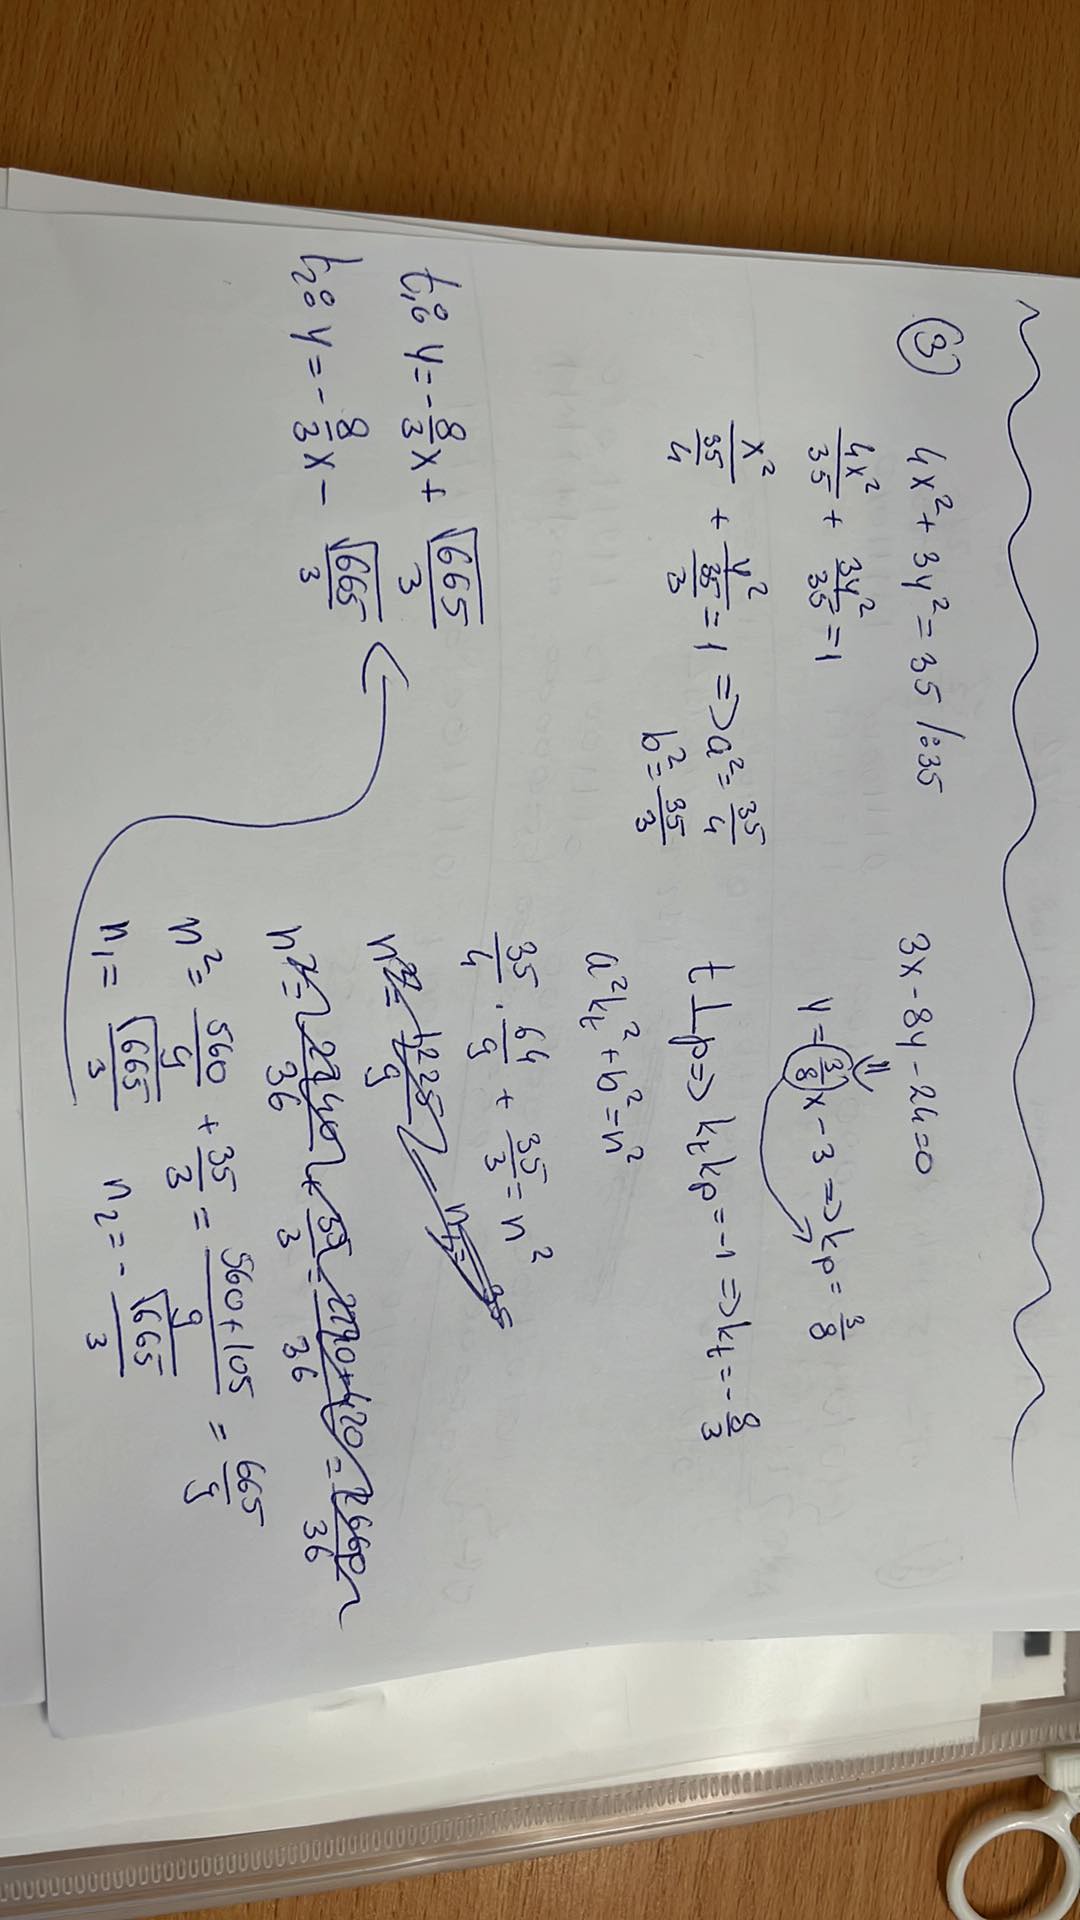 3
4x² + 3y² = 35 /:35
4x²/35 + 3y²/35 = 1
x²/(35/4) + y²/(35/3) = 1 => a² = 35/4
b² = 35/3
3x - 8y - 24 = 0
y = 3/8 x - 3 => kp = 3/8
t ⊥ p => kt kp = -1 => kt = -8/3
a²kt² + b² = n²
35/4 · 64/9 + 35/3 = n²
n² = 1225/9
n² = 2240/36 + 35/3 = 2240+420/36 = 2660/36
n² = 560/9 + 35/3 = 560+105/9 = 665/9
n₁ = √665/3 n₂ = -√665/3
t₁: y = -8/3 x + √665/3
t₂: y = -8/3 x - √665/3